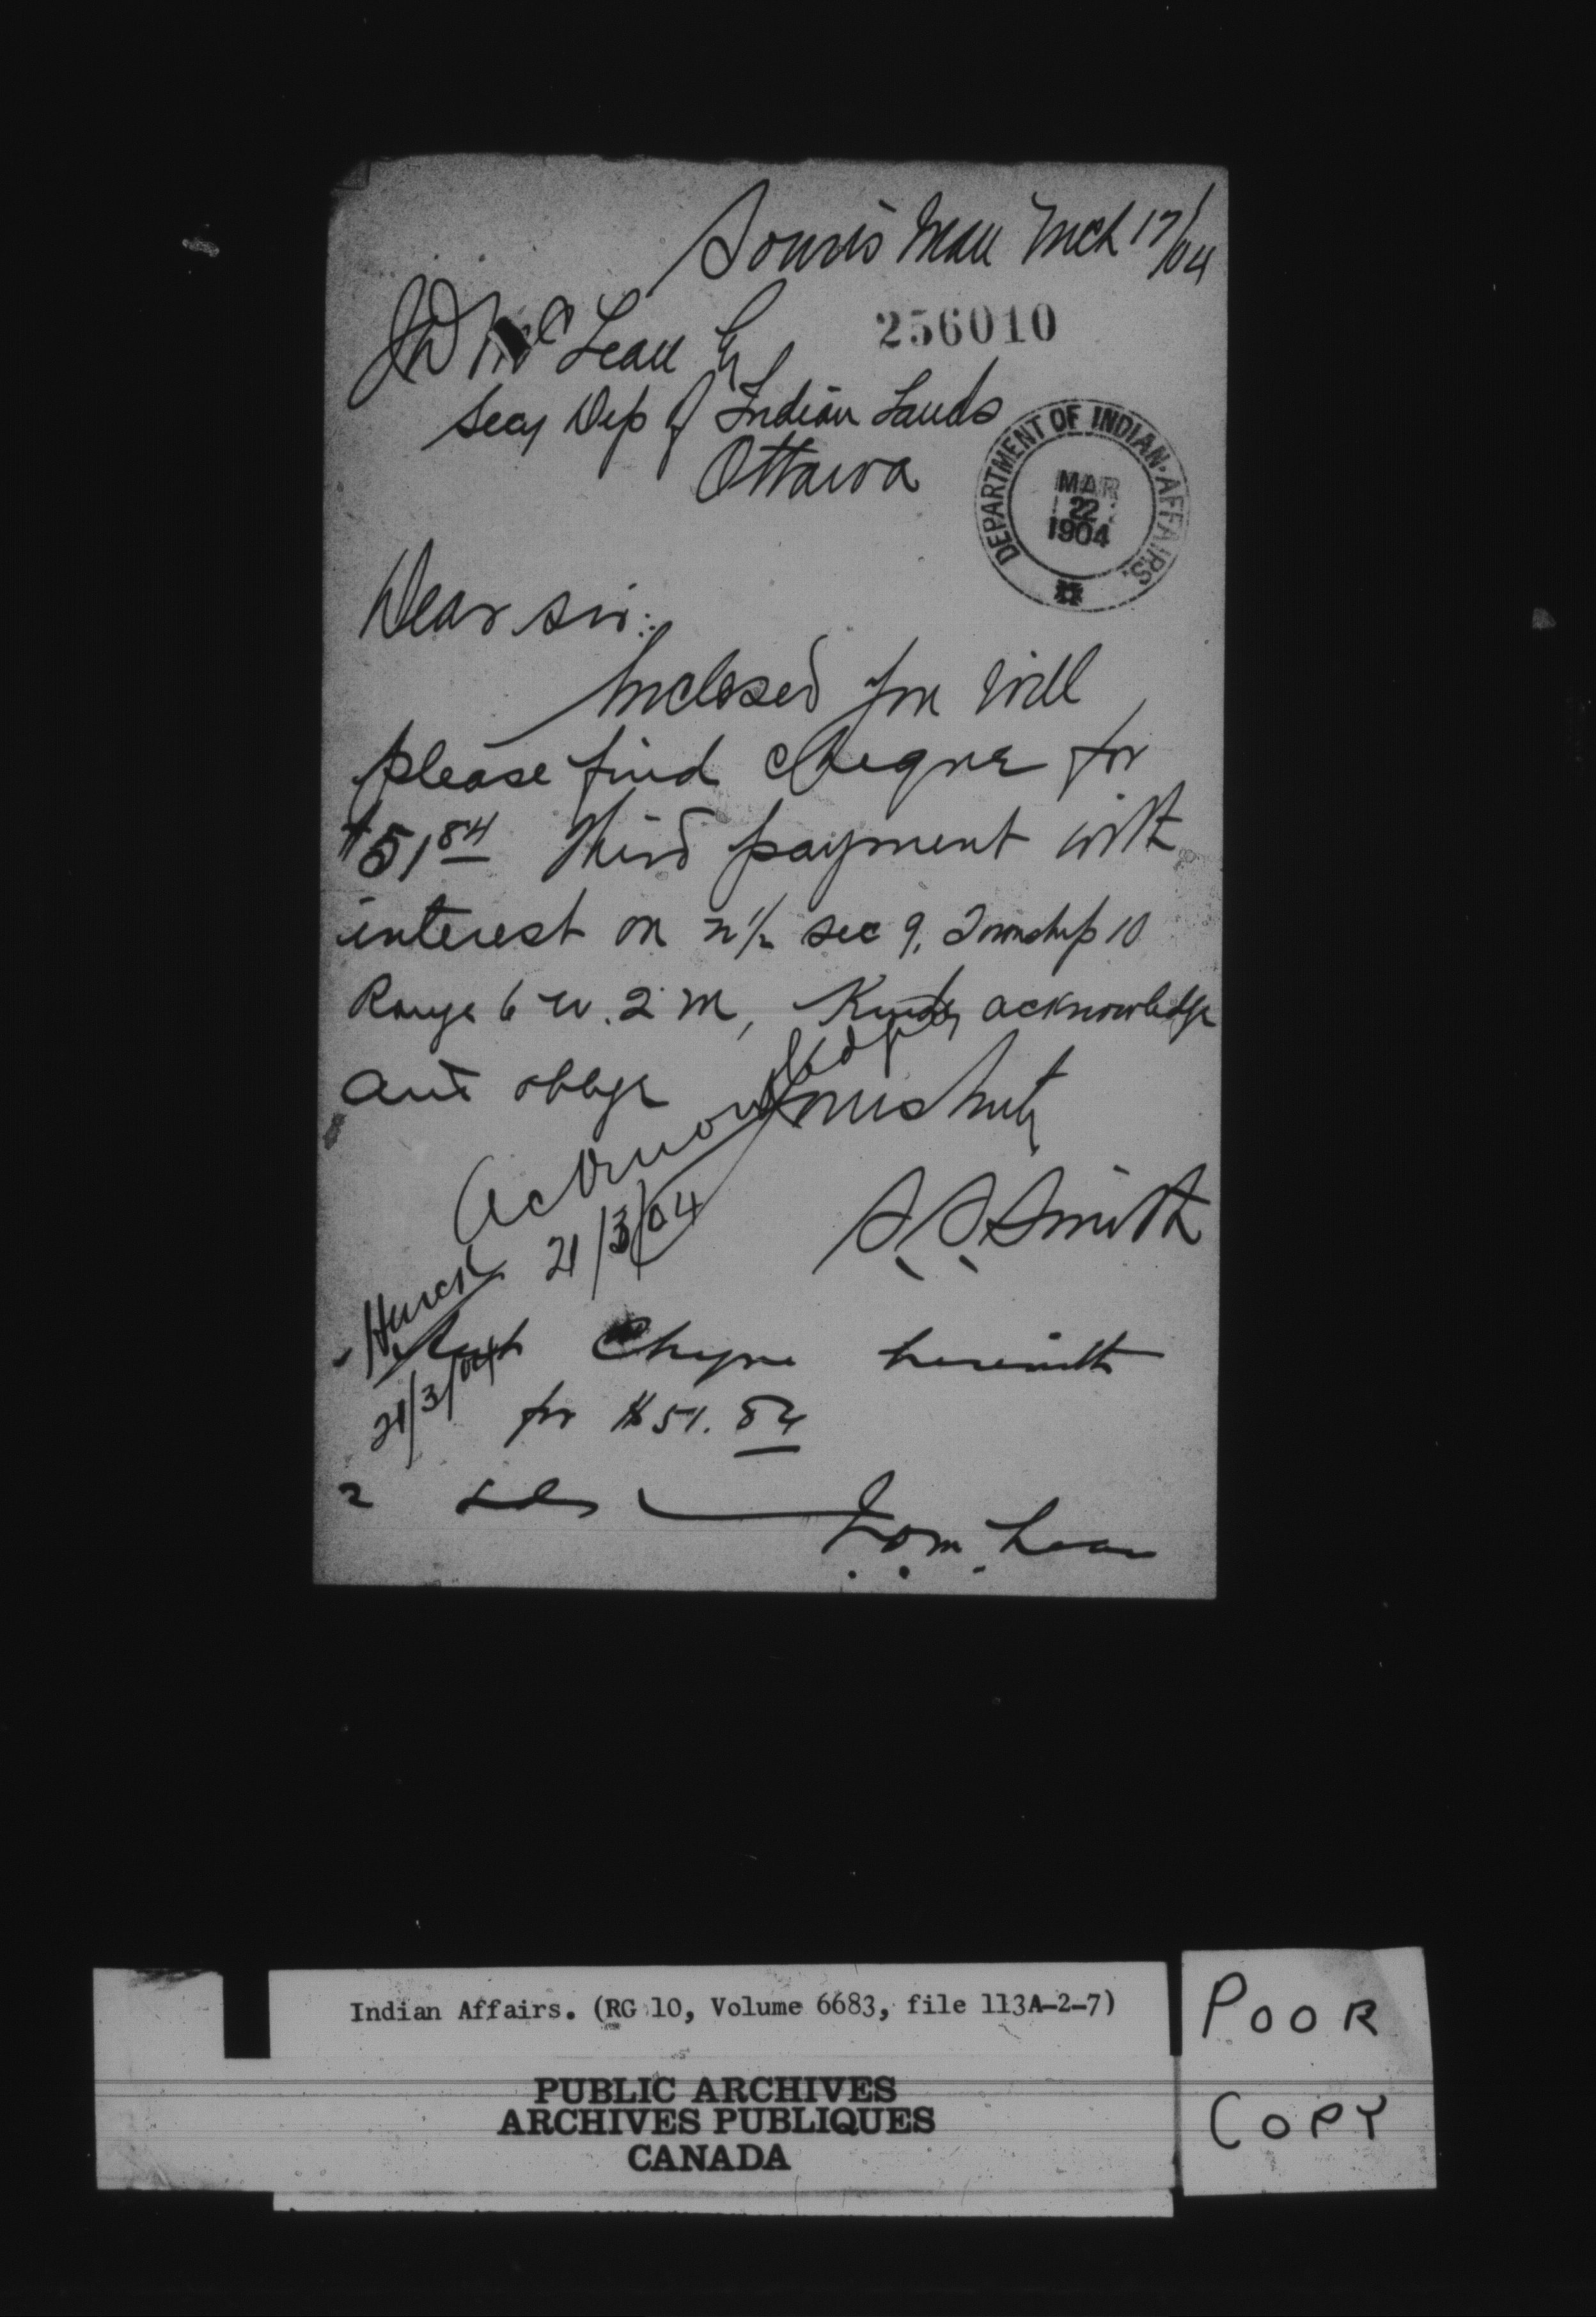 Souris Man Mch 17/04
256010
J D McLean Esq
Secy Dep of Indian Lands
Ottawa
DEPARTMENT OF INDIAN AFFAIRS.
MAR
22
1904
Dear sir:
Inclosed you will
please find cheque for
$51 84 Third payment with
interest on n 1/2 sec 9. Township 10
Range 6 W. 2 M, Kindly acknowledge
and oblige
Yours truly
Acknowledged
21/3/04
S. S. Smith
Acct Cheque herewith
21/3/04
for $51.84
2
J. D. M. Lean
Indian Affairs. (RG 10, Volume 6683, file 113A-2-7)
PUBLIC ARCHIVES
ARCHIVES PUBLIQUES
CANADA
POOR
COPY